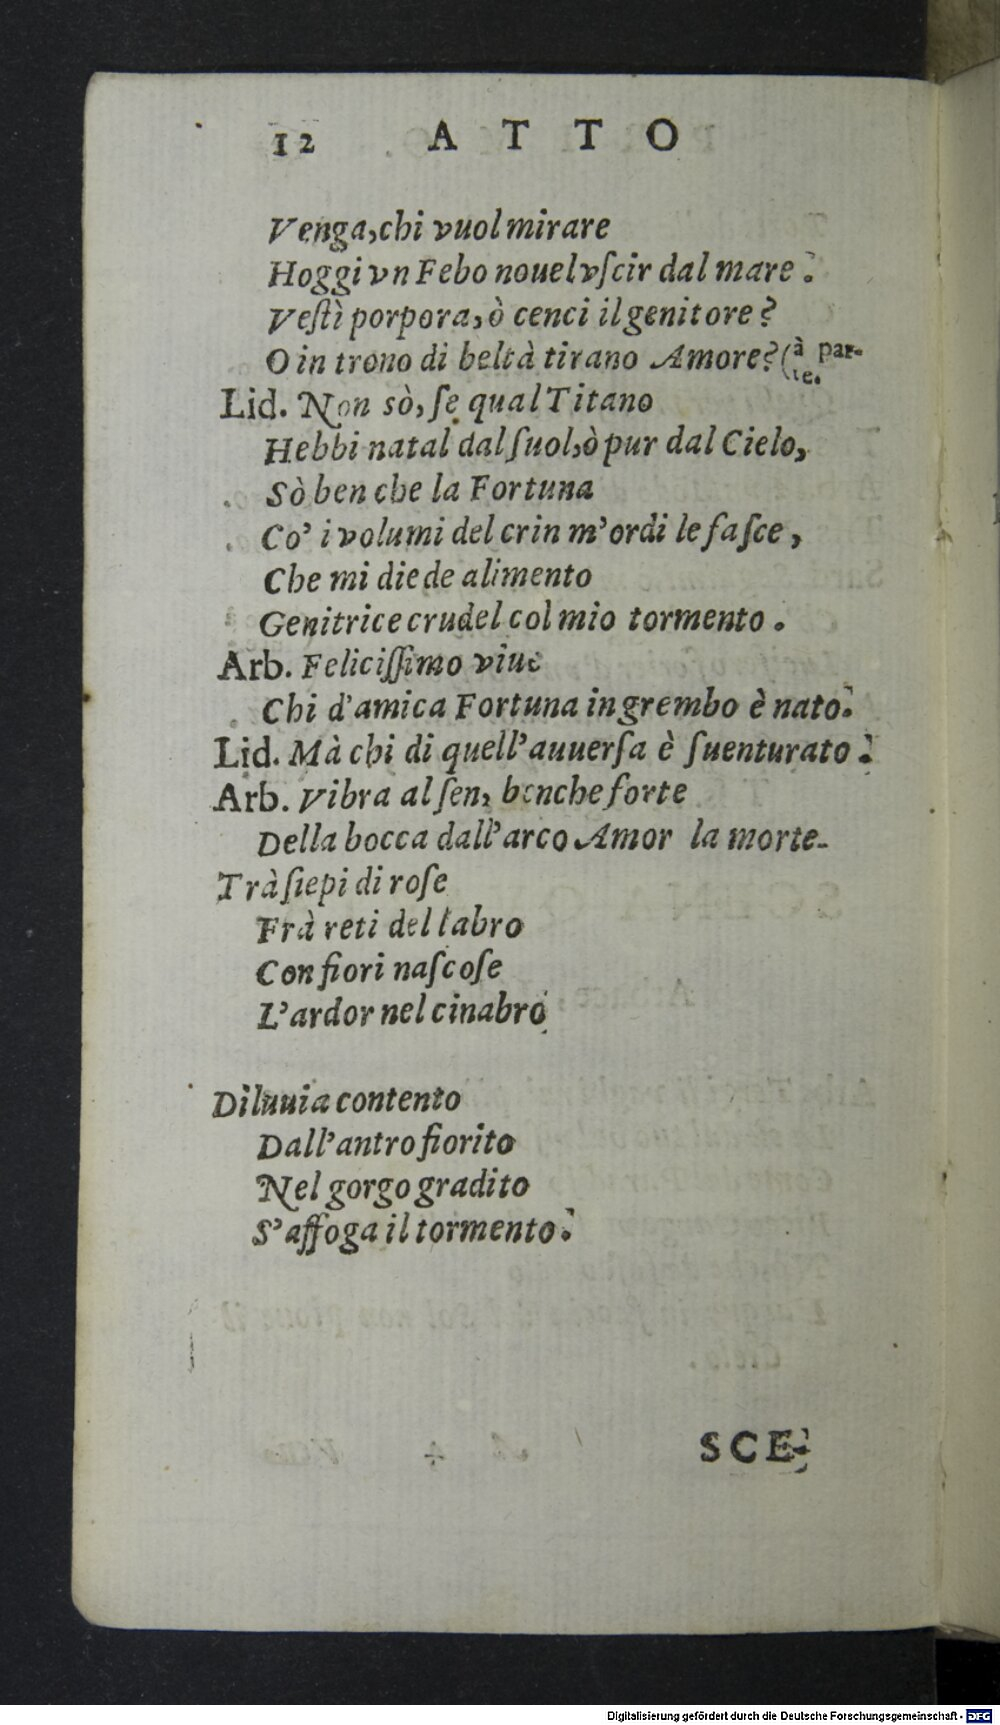 12 ATTO
Venga, chi vuol mirare
Hoggi vn Febo nouel vſcir dal mare.
Veſtì porpora, ò cenci il genitore?
O in trono di beltà tirano Amore? (à par-
te.
Lid. Non sò, ſe qual Titano
Hebbi natal dal ſuol, ò pur dal Cielo,
Sò ben che la Fortuna
Co' i volumi del crin m'ordì le faſce,
Che mi diede alimento
Genitrice crudel col mio tormento.
Arb. Feliciſſimo viue
Chi d'amica Fortuna in grembo è nato.
Lid. Mà chi di quell'auuerſa è ſuenturato.
Arb. Vibra al ſen, benche forte
Della bocca dall'arco Amor la morte.
Trà ſiepi di roſe
Frà reti del labro
Con fiori naſcoſe
L'ardor nel cinabro
Diluuia contento
Dall'antro fiorito
Nel gorgo gradito
S'affoga il tormento.
SCE-
Digitalisierung gefördert durch die Deutsche Forschungsgemeinschaft - DFG